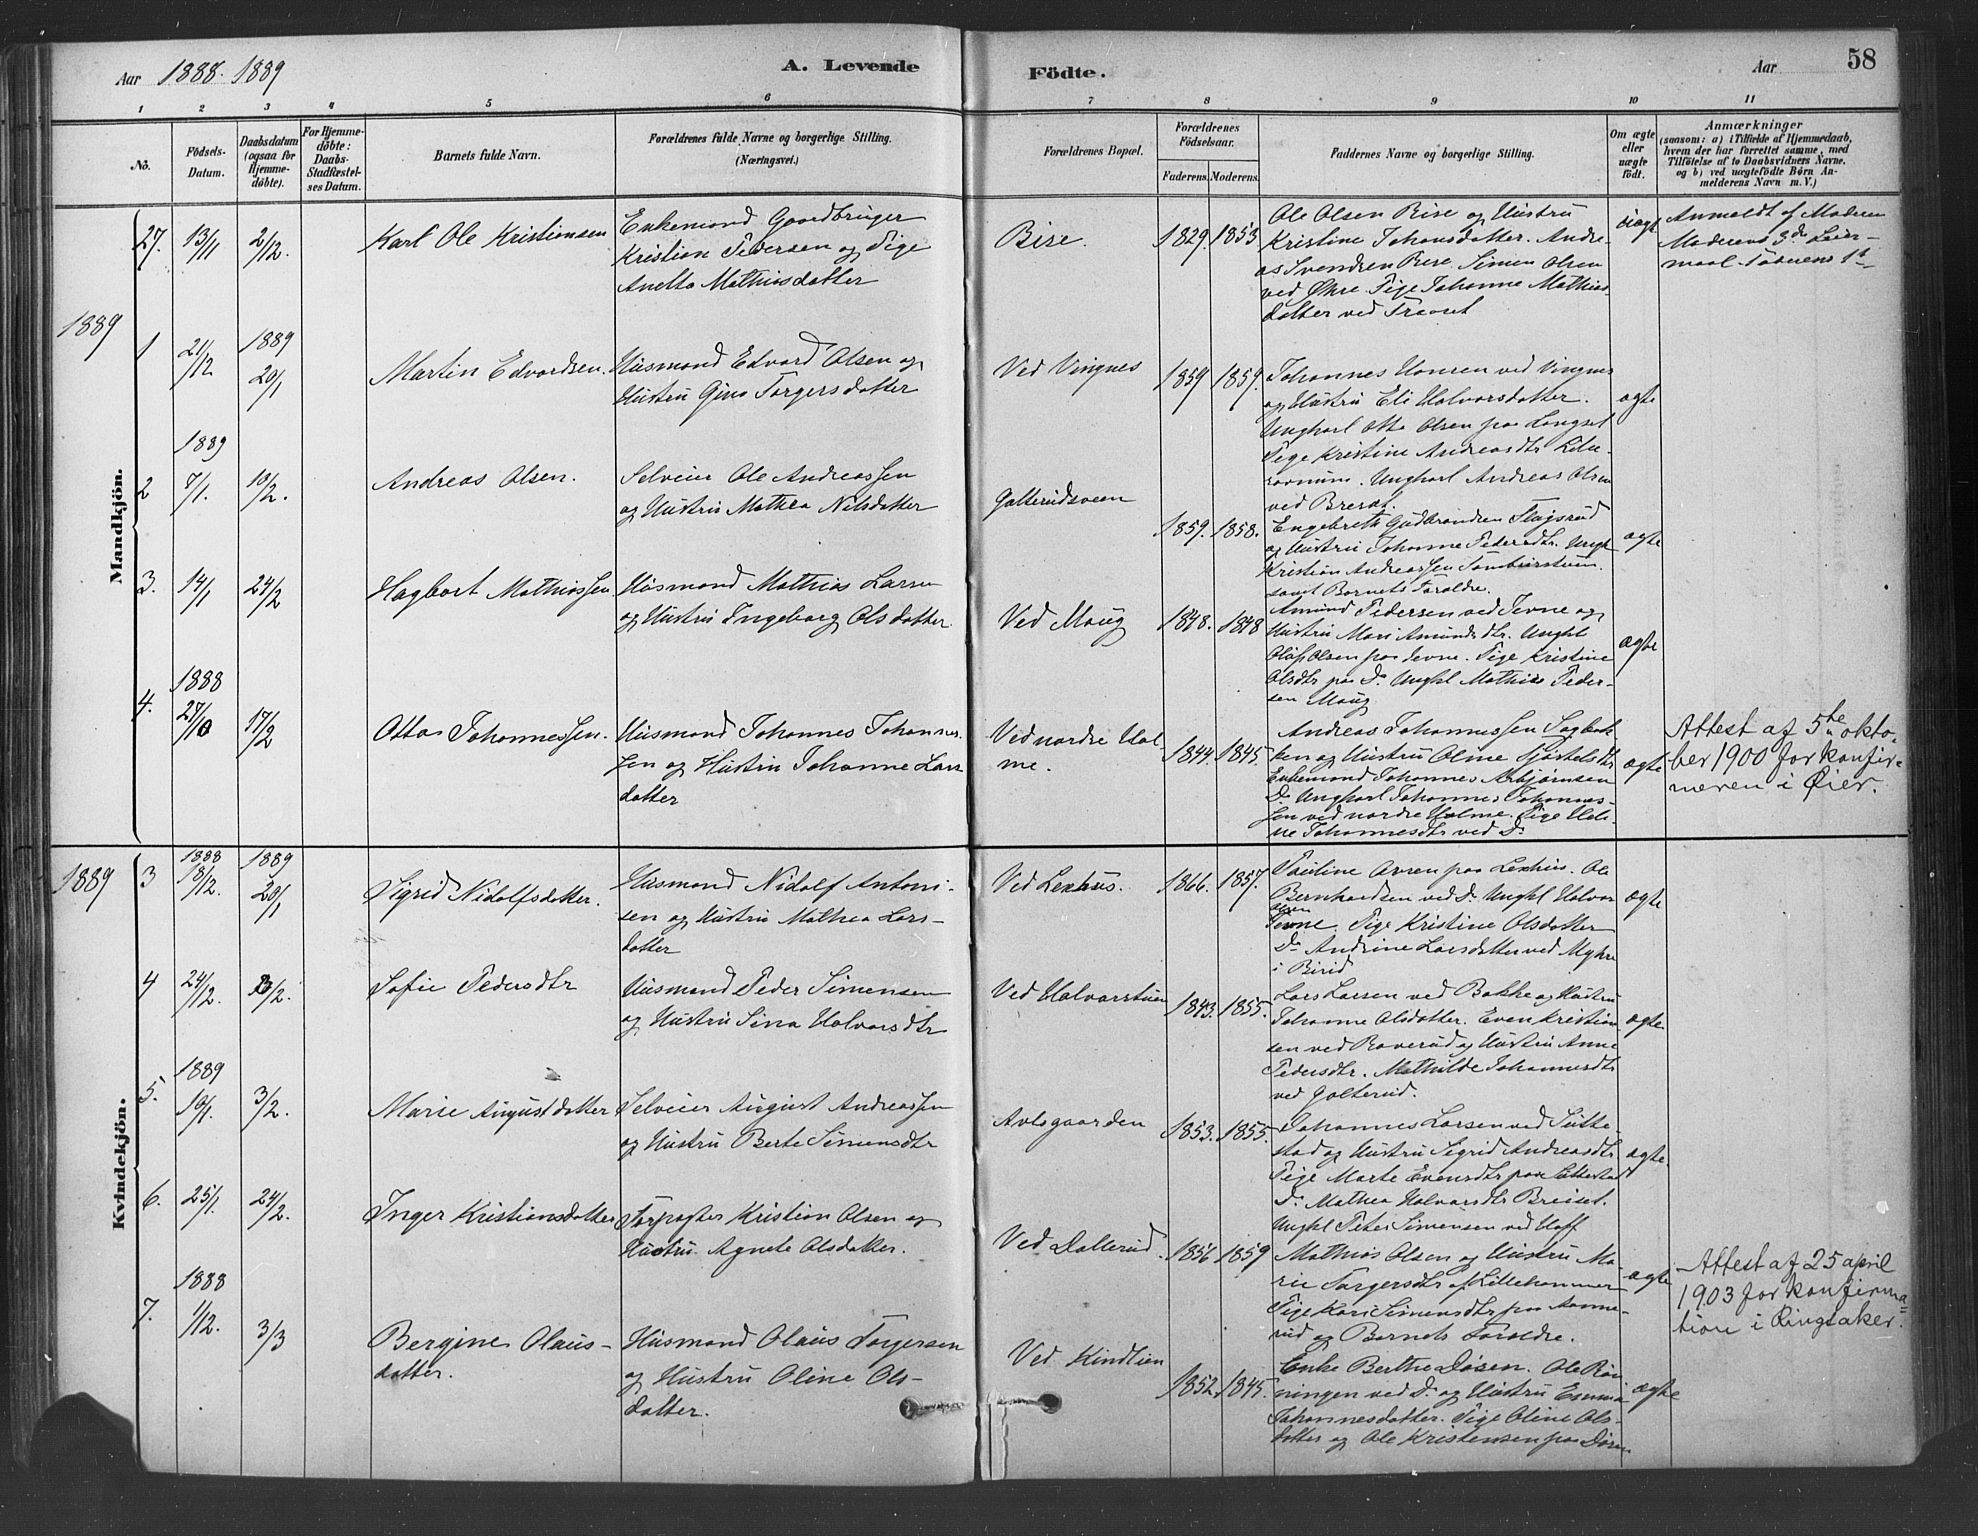 Aar 1888. 1889
A. Levende
Födte.
Aar
58
1 2 3 4 5 6 7 8 9 10 11
No.
Födsels-
Datum.
Daabsdatum
(ogsaa for
Hjemme-
döbte).
For Hjemme-
döbte:
Daabs-
Stadfæstel-
ses Datum.
Barnets fulde Navn.
Forældrenes fulde Navne og borgerlige Stilling.
(Næringsvei.)
Forældrenes Bopæl.
Forældrenes
Födselsaar.
Faderens. Moderens.
Faddernes Navne og borgerlige Stilling.
Om ægte
eller
uægte
födt.
Anmærkninger
(saasom: a) i Tilfælde af Hjemmedaab,
hvem der har forrettet samme, med
Tilföielse af to Daabsvidners Navne.
og b) ved uægtefödte Börn An-
melderens Navn m. V.)
Mandkjön.
27. 13/11 2/12.
Karl Ole Kristiansen
Enkemand Gaardbruger
Kristian Pedersen og Pige
Anetta Mathiasdatter
Bise.
1829. 1853
Ole Olsen Bise og Hustru
Kristine Johansdatter. Andre-
as Svendsen Bise Simen Olsen
ved Økre Pige Johanne Mathias-
datter ved Traaset
uægt
Anmeldt af Moderen
Moderens 3de Leier-
maal. Faderens 1ste
1889
1 21/12 1889 20/1
Martin Edvardsen.
Husmand Edvard Olsen og
Hustru Gina Torgersdatter
Ved Vingnes
1859 1859.
Johannes Hansen ved Vingnes
og Hustru Eli Halvorsdatter.
Ungkarl Otto Olsen paa Langset
Pige Kristine Andreasdtr
ægte
1889
2 7/1. 10/2.
Andreas Olsen.
Selveier Ole Andreassen
og Hustru Mathea Nilsdatter
Galterudsveen
1859. 1858.
Ungkarl Andreas Olsen
ved
Engebreth Gudbrandsen Flagsrud
og Hustru Johanne Pedersdtr. Ungk
Kristian Andreassen
samt Barnets Forældre.
ægte
3. 14/1 24/2
Hagbart Mathiassen
Husmand Mathias Larsen
og Hustru Ingeborg Olsdatter.
Ved Moug
1848. 1848
Amund Pedersen ved Jevne og
Hustru Mari Amundsdtr. Ungkl
Oluf Olsen paa Jevne. Pige Kristine
Olsdtr paa Do Ungkl Mathias Peder-
sen Moug
ægte
4. 1888 27/10 17/2
Otto Johannessen.
Husmand Johannes Johannes-
sen og Hustru Johanne Lars
datter
Ved nordre Hol-
me.
1844. 1845.
Andreas Johannessen Sagbak-
ken og Hustru Oline
Enkemand Johannes Arbjörnsen
Do Ungkarl Johannes Johannes-
sen ved nordre Holme. Pige
ne Johannesdtr ved Do
ægte
Attest af 5te okto-
ber 1900 for konfir-
meren i Øier.
Kvindekjön.
1889
3 1888 18/12. 1889 20/1
Sigrid Nidolfsdatter.
Husmand Nidolf Antoni-
sen og Hustru Mathea Lars-
datter
Ved Lexhus.
1866. 1857.
Pauline paa Lexhus. Ole
Bernhardsen ved Do Ungkl Halvor
Olsen
Jevne. Pige Kristine Olsdatter
Do Andrine Larsdatter ved Myhre
i Birid
ægte
4 24/12. 3/2.
Sofie Pedersdtr
Husmand Peder Simensen
og Hustru Sina Halvorsdtr
Ved Halvorstuen
1843. 1855.
Lars Larsen ved Bakke og Hustru
Johanne Olsdatter. Even Kristian
sen ved Roverud og Hustru Anne
Pedersdtr. Mathilde Johannesdtr
ved Galterud.
ægte
5. 1889 10/1. 3/2.
Marie Augustdatter
Selveier August Andreassen
og Hustru Berte Simensdtr
Avlsgaarden
1853. 1855.
Johannes Larsen ved Sutte-
stad og Hustru Sigrid Andreasdtr
Pige Marte Evensdtr paa
Do Mathea Halvorsdtr Breiset.
Ungkl Peter Simensen ved Hoff
ægte.
6. 25/1. 24/2.
Inger Kristiansdatter
Forpagter Kristian Olsen og
Hustru Agnete Olsdatter.
Ved Dalterud.
1856 1859
Mathias Olsen og Hustru Ma-
rie Torgersdtr af Lillehammer
Pige Kari Simensdtr paa
rud og Barnets Forældre.
ægte
Attest af 25 april
1903 for konfirma-
tion i Ringsaker.
7. 1888 1/12. 3/3
Bergine Olaus-
datter.
Husmand Olaus Torgersen
og Hustru Oline Ols-
datter.
Ved Kindlien
1852. 1845.
Enke Berthe Døsen. Ole Røn-
ningen ved Do og Hustru Emma
Johannesdatter. Pige Oline Ols-
datter og Ole Kristensen paa Døsen
ægte